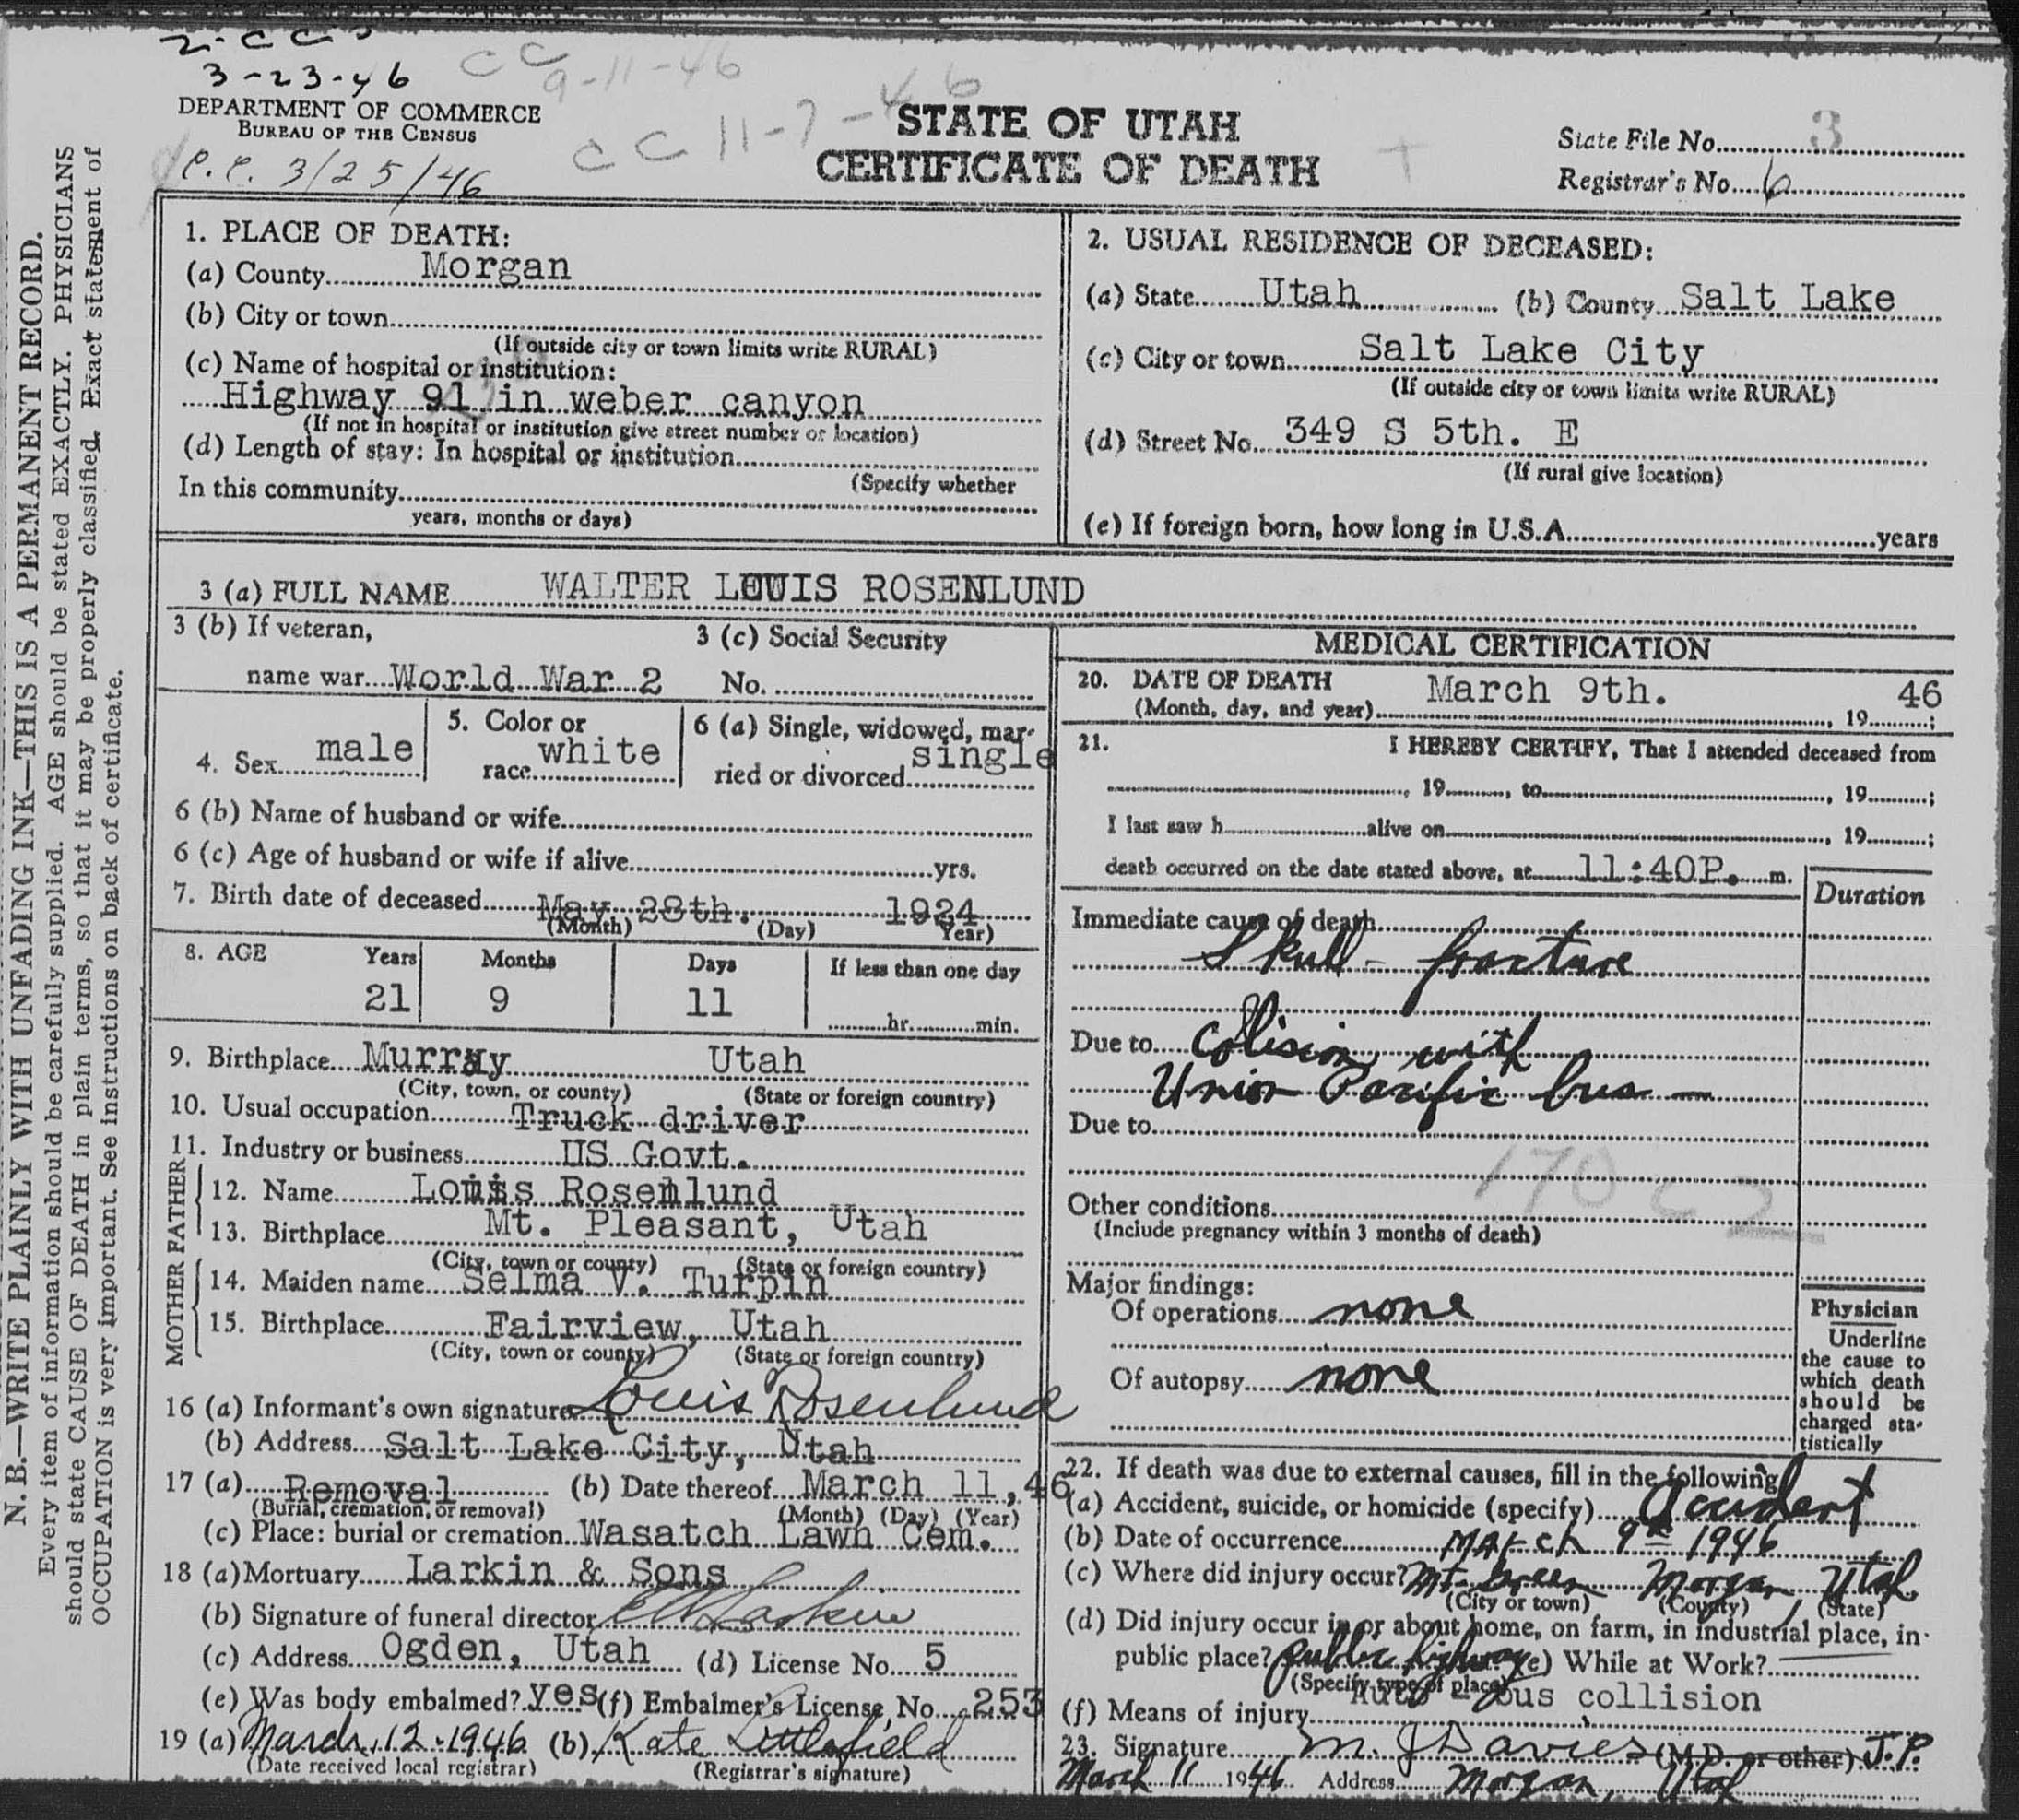 3-23-46
CC
9-11-46
CC 11-7-46
DEPARTMENT OF COMMERCE
BUREAU OF THE CENSUS
C.C. 3/25/46
STATE OF UTAH
CERTIFICATE OF DEATH
State File No. 3
Registrar's No. 6
N. B.—WRITE PLAINLY WITH UNFADING INK—THIS IS A PERMANENT RECORD.
Every item of information should be carefully supplied. AGE should be stated EXACTLY. PHYSICIANS
should state CAUSE OF DEATH in plain terms, so that it may be properly classified. Exact statement of
OCCUPATION is very important. See instructions on back of certificate.
1. PLACE OF DEATH:
(a) County Morgan
(b) City or town
(If outside city or town limits write RURAL)
(c) Name of hospital or institution:
Highway 91 in weber canyon
(If not in hospital or institution give street number or location)
(d) Length of stay: In hospital or institution
(Specify whether
In this community
years, months or days)
2. USUAL RESIDENCE OF DECEASED:
(a) State Utah (b) County Salt Lake
(c) City or town Salt Lake City
(If outside city or town limits write RURAL)
(d) Street No. 349 S 5th. E
(If rural give location)
(e) If foreign born, how long in U.S.A. years
3 (a) FULL NAME WALTER LOUIS ROSENLUND
3 (b) If veteran,
name war World War 2
3 (c) Social Security
No.
4. Sex male
5. Color or
race white
6 (a) Single, widowed, mar-
ried or divorced single
6 (b) Name of husband or wife
6 (c) Age of husband or wife if alive yrs.
7. Birth date of deceased May 28th. 1924
(Month) (Day) Year)
8. AGE Years Months Days If less than one day
21 9 11 hr. min.
9. Birthplace Murray Utah
(City, town, or county) (State or foreign country)
10. Usual occupation Truck driver
11. Industry or business US Govt.
FATHER
12. Name Louis Rosenlund
13. Birthplace Mt. Pleasant, Utah
(City, town or county) (State or foreign country)
MOTHER
14. Maiden name Selma V. Turpin
15. Birthplace Fairview, Utah
(City, town or county) (State or foreign country)
16 (a) Informant's own signature Louis Rosenlund
(b) Address Salt Lake City, Utah
17 (a) Removal (b) Date thereof March 11, 46
(Burial, cremation, or removal) (Month) (Day) (Year)
(c) Place: burial or cremation Wasatch Lawn Cem.
18 (a) Mortuary Larkin & Sons
(b) Signature of funeral director Larkin
(c) Address Ogden, Utah (d) License No. 5
(e) Was body embalmed? yes (f) Embalmer's License No. 253
19 (a) March 12-1946 (b) Kate Littlefield
(Date received local registrar) (Registrar's signature)
MEDICAL CERTIFICATION
20. DATE OF DEATH March 9th. 46
(Month, day, and year) , 19 ;
21. I HEREBY CERTIFY, That I attended deceased from
, 19 , to , 19 ;
I last saw h alive on , 19 ;
death occurred on the date stated above, at 11:40P. m.
Duration
Immediate cause of death
Skull - fracture
Due to Collision with
Union Pacific bus —
Due to
170 c 2
Other conditions
(Include pregnancy within 3 months of death)
Major findings:
Of operations none
Of autopsy none
Physician
Underline
the cause to
which death
should be
charged sta-
tistically
22. If death was due to external causes, fill in the following
(a) Accident, suicide, or homicide (specify) Accident
(b) Date of occurrence March 9th 1946
(c) Where did injury occur? Mt. Green Morgan Utah
(City or town) (County) (State)
(d) Did injury occur in or about home, on farm, in industrial place, in
public place? public highway (e) While at Work?
(Specify type of place)
(f) Means of injury Auto - bus collision
23. Signature M. J Davies (M.D. or other) J.P.
March 11 1946 Address Morgan, Utah